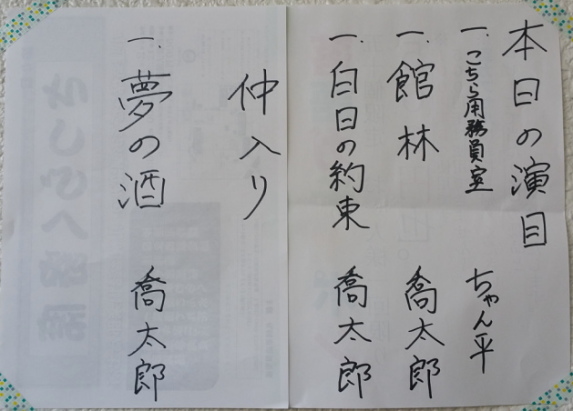 本日の演目
一、こちら用務員室 ちゃん平
一、館林 喬太郎
一、白日の約束 喬太郎
仲入り
一、夢の酒 喬太郎